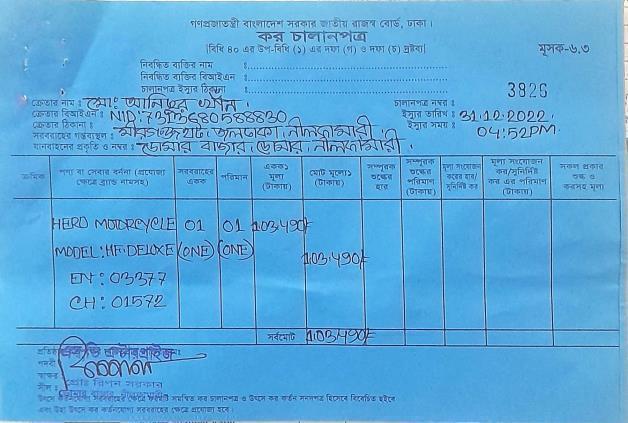 গণপ্রজাতন্ত্রী বাংলাদেশ সরকার জাতীয় রাজস্ব বোর্ড, ঢাকা।
কর চালানপত্র
[বিধি ৪০ এর উপ-বিধি (১) এর দফা (গ) ও দফা (চ) দ্রষ্টব্য]
মূসক-৬.৩
নিবন্ধিত ব্যক্তির নাম :
নিবন্ধিত ব্যক্তির বিআইএন :
চালানপত্র ইস্যুর ঠিকানা :
3826
ক্রেতার নাম : মোঃ আনিছুর
চালানপত্র নম্বর :
ক্রেতার বিআইএন : NID:7313680588830
ইস্যুর তারিখ : 31.10.2022.
ক্রেতার ঠিকানা : জলঢাকা, নীলফামারী।
ইস্যুর সময় : 04:52PM.
সরবরাহের গন্তব্যস্থল :
যানবাহনের প্রকৃতি ও নম্বর : ডোমার বাজার, ডোমার, নীলফামারী।
ক্রমিক
পণ্য বা সেবার বর্ণনা (প্রযোজ্য ক্ষেত্রে ব্র্যান্ড নামসহ)
সরবরাহের একক
পরিমান
একক মূল্য (টাকায়)
মোট মূল্য (টাকায়)
সম্পূরক শুল্কের হার
সম্পূরক শুল্কের পরিমাণ (টাকায়)
মূল্য সংযোজন করের হার/ সুনির্দিষ্ট কর
মূল্য সংযোজন কর/সুনির্দিষ্ট কর এর পরিমাণ (টাকায়)
সকল প্রকার শুল্ক ও করসহ মূল্য
HERO MOTORCYCLE 01 01 103490/-
MODEL: HF-DELUXE (ONE) (ONE) 103490/-
EN: 03377
CH: 01572
সর্বমোট 103490/-
এন্টারপ্রাইজ
পদবী
স্বাক্ষর
মোঃ রিপন সরকার
সীল :
ডোমার বাজার, নীলফামারী
উৎসে কর্তনযোগ্য সরবরাহের ক্ষেত্রে ফরমটি সমন্বিত কর চালানপত্র ও উৎসে কর কর্তন সনদপত্র হিসেবে বিবেচিত হইবে
এবং উহা উৎসে কর কর্তনযোগ্য সরবরাহের ক্ষেত্রে প্রযোজ্য হবে।